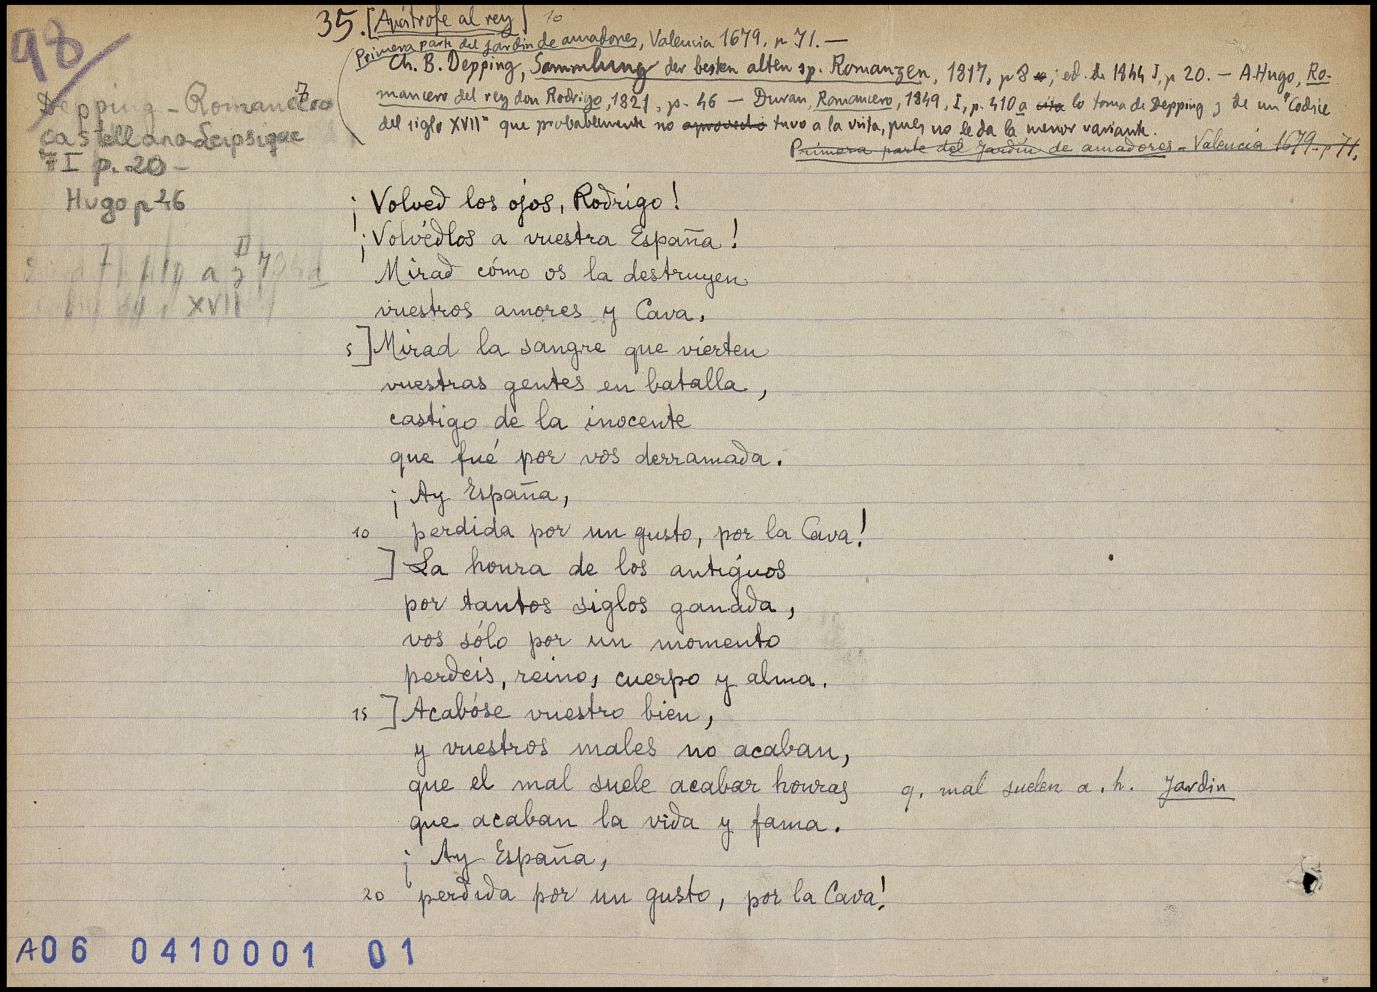 98
35. [Apóstrofe al rey] 10
Primera parte del jardín de amadores, Valencia 1679, p 71. —
Ch. B. Depping, Sammlung der besten alten sp. Romanzen, 1817, p 8; ed. de 1844 I, p 20. — A. Hugo, Ro-
mancero del rey don Rodrigo, 1821, p. 46 — Duran, Romancero, 1849, I, p. 410 a lo toma de Depping y de un "Codice
del siglo XVII" que probablemente no aprovechó tuvo a la vista, pues no le da la menor variante.
Primera parte del Jardín de amadores - Valencia 1679 - p 71.
Depping - Romancero
castellano - Leipsique
I p. 20 -
Hugo p 46
XVII
¡Volved los ojos, Rodrigo!
¡Volvédlos a vuestra España!
Mirad cómo os la destruyen
vuestros amores y Cava.
5 ] Mirad la sangre que vierten
vuestras gentes en batalla,
castigo de la inocente
que fué por vos derramada.
¡Ay España,
10 perdida por un gusto, por la Cava!
] La honra de los antiguos
por tantos siglos ganada,
vos sólo por un momento
perdeis, reino, cuerpo y alma.
15 ] Acabóse vuestro bien,
y vuestros males no acaban,
que el mal suele acabar honras q. mal suelen a. h. Jardin
que acaban la vida y fama.
¡Ay España,
20 perdida por un gusto, por la Cava!
A06 0410001 01